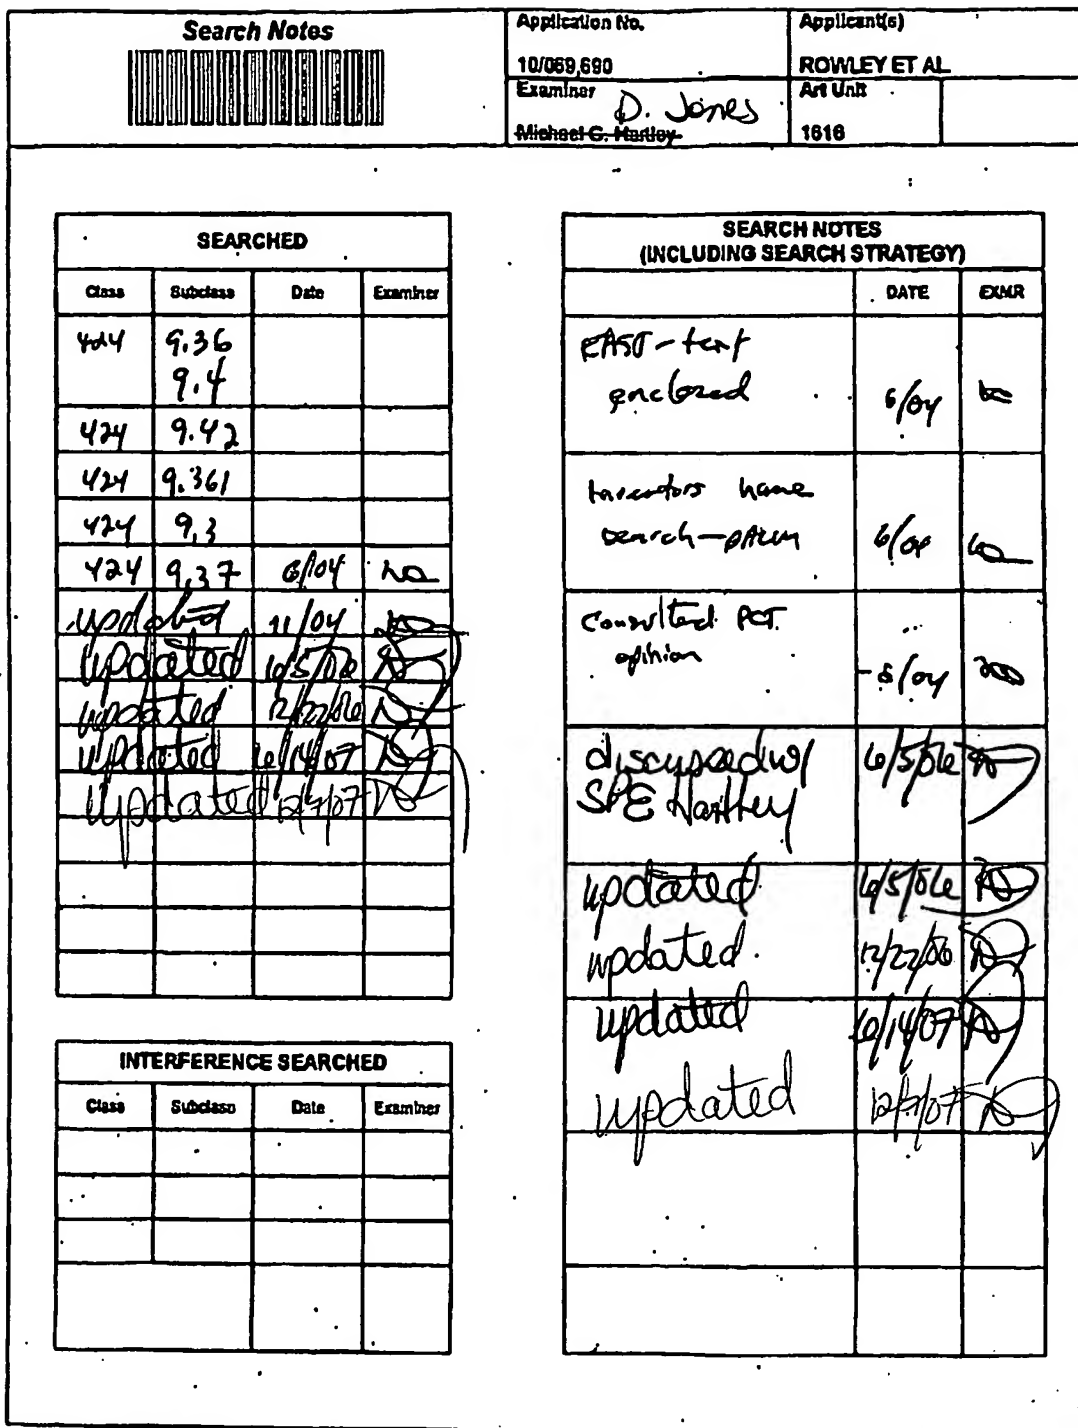 Search Notes
Application No.
Applicant(s)
10/069,690
ROWLEY ET AL
Examiner
D. Jones
Michael G. Hartley
Art Unit
1616
SEARCHED
Class Subclass Date Examiner
424 9.36
9.4
424 9.42
424 9.361
424 9.3
424 9.37 6/04
updated 11/04
updated 6/5/06
updated 12/22/06
updated 6/14/07
updated 12/7/07
INTERFERENCE SEARCHED
Class Subclass Date Examiner
SEARCH NOTES
(INCLUDING SEARCH STRATEGY)
DATE EXMR
EAST - text
enclosed 6/04
Inventors name
search - PALM 6/04
Consulted PCT
opinion
discussed w/ 6/5/06
SPE Hartley
updated 6/5/06
updated 12/22/06
updated 6/14/07
updated 12/7/07